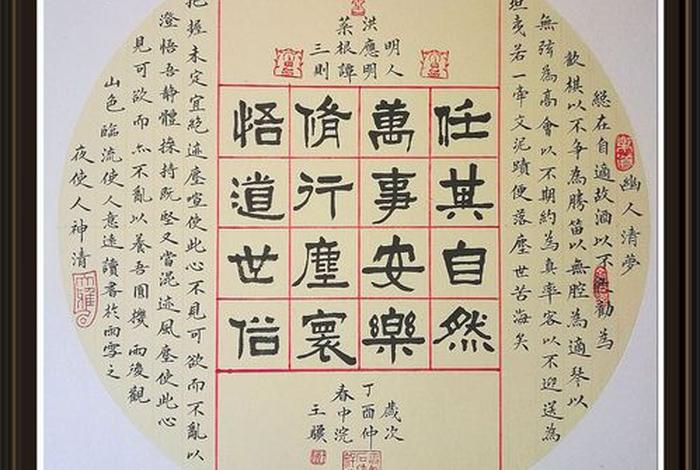 幽人清夢
總在自適故酒以不勸為
歡棋以不爭為勝笛以無腔為適琴以
無弦為高會以不期約為真率客以不迎送為
坦夷若一牽文泥蹟便落塵世苦海矣
明人
洪應明
菜根譚
三則
任其自然
萬事安樂
脩行塵寰
悟道世俗
歲次
丁酉仲
春中浣
王
把握未定宜絕迹塵喧使此心不見可欲而不亂以
澄悟吾静體操持既堅又當混迹風塵使此心
見可欲而亦不亂以養吾圓機 雨後觀
山色 臨流使人意遠 讀書於雨雪之
夜使人神清